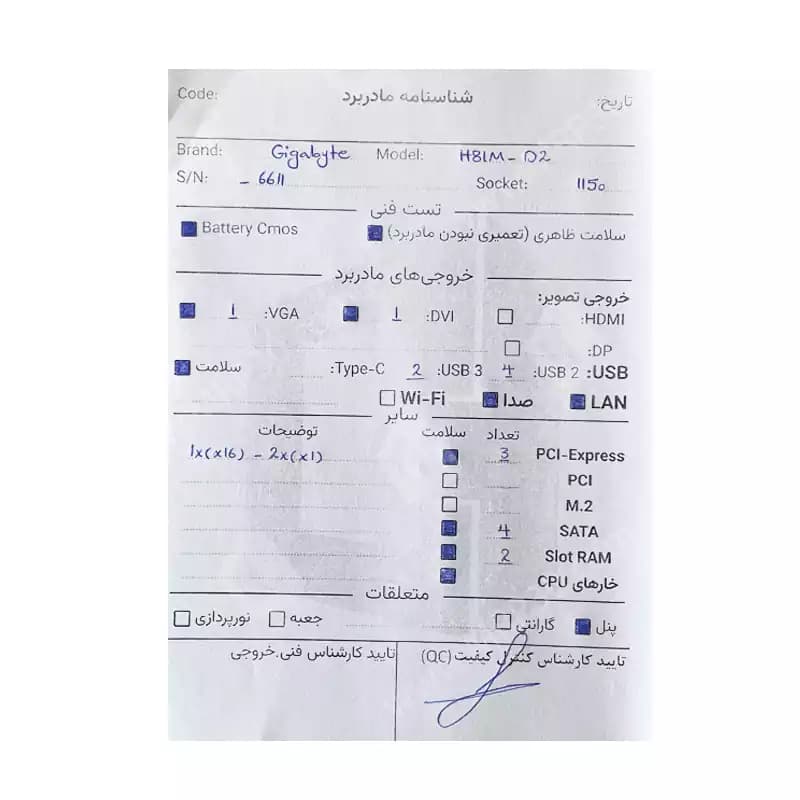 تاریخ: شناسنامه مادربرد Code:
Brand: Gigabyte Model: H81M-D2
S/N: - 6611 Socket: 1150
تست فنی
سلامت ظاهری (تعمیری نبودن مادربرد) Battery Cmos
خروجی‌های مادربرد
خروجی تصویر:
HDMI: DVI: 1 VGA: 1
DP:
USB: USB 2: 4 USB 3: 2 Type-C: سلامت
LAN صدا Wi-Fi
سایر
تعداد سلامت توضیحات
PCI-Express 3 1x(x16) - 2x(x1)
PCI
M.2
SATA 4
Slot RAM 2
خارهای CPU
متعلقات
پنل گارانتی جعبه نورپردازی
تایید کارشناس کنترل کیفیت (QC) تایید کارشناس فنی.خروجی